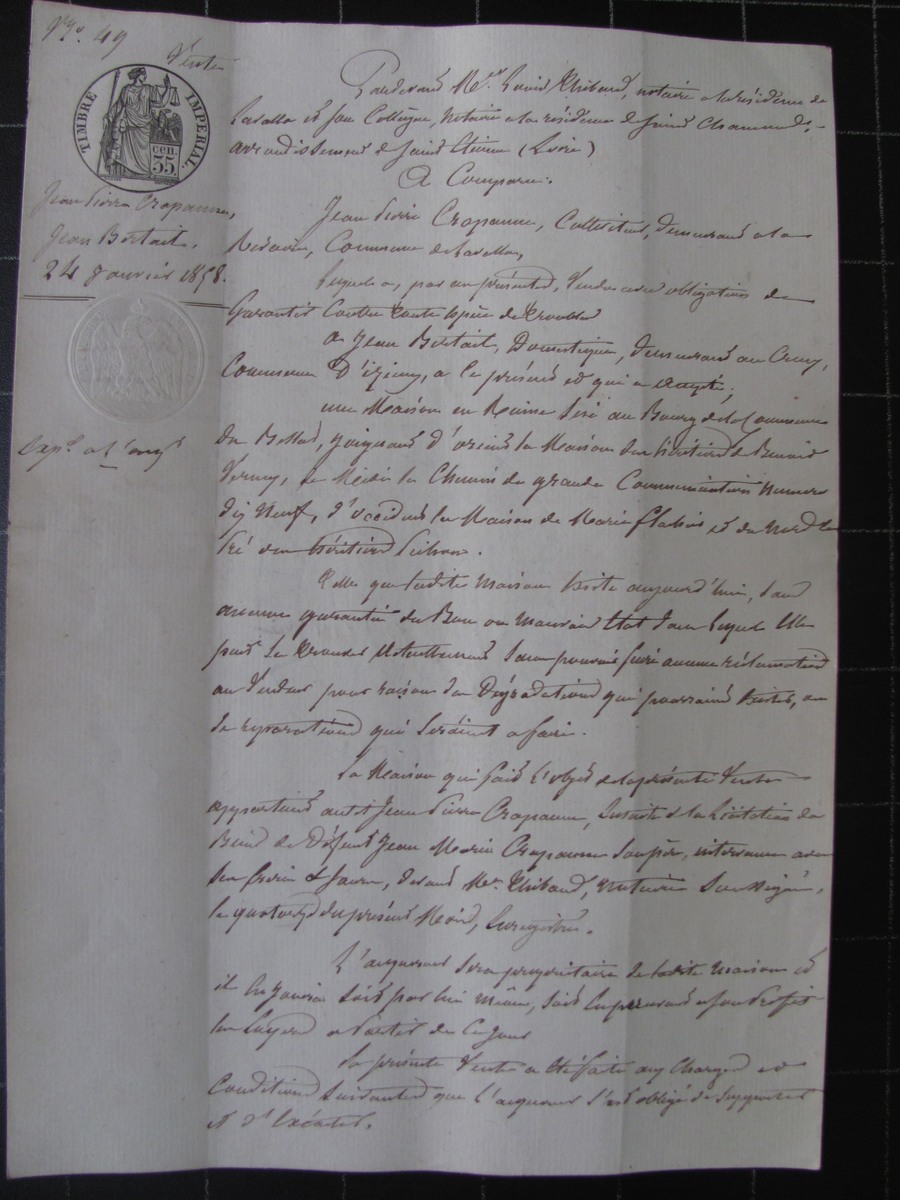 N.º 49
Vente
TIMBRE IMPERIAL
35 CEN.
Jean Pierre Crapanne,
Jean Bertail,
24 Janvier 1858.
Exp. a l'acq.
Pardevant M.e Louis Thibaud, notaire a la résidence de
Lavalla et son Collègue, notaire a la résidence de Saint Chamond,
arrondissement de Saint Etienne (Loire)
A Comparu:
Jean Pierre Crapanne, Cultivateur, demeurant a la
Commune de Lavalla,
Lequel a, par ces présentes, Vendu avec obligation de
Garantir Contre toute espèce de troubles
a Jean Bertail, Domestique, demeurant au
Commune D'izieux, a ce présent et qui a accepté;
une Maison en Ruine Sise au Bourg de la Commune
Du joignant d'orient la Maison des héritiers de Benoit
Verney, de Midi le Chemin de grande Communication Numéro
dix Neuf, d'occident la Maison de Marie et du Nord le
Pré des héritiers
Telle que ladite Maison Existe aujourd'hui, Sans
aucune garantie du Bon ou Mauvais Etat dans lequel Elle
peut Se trouver Actuellement Sans pouvoir faire aucune réclamation
au Vendeur pour raison des Dégradations qui pourraient Exister, ou
de réparations qui Seraient a faire.
La Maison qui fait l'objet de la présente Vente
appartient audit Jean Pierre Crapanne, Ensuite de la Licitation des
Biens de Défunt Jean Marie Crapanne Son père, intervenue avec
Ses frères & Sœurs, devant M.e Thibaud, Notaire Soussigné,
le quatorze du présent Mois, Enregistré.
L'acquéreur Sera propriétaire de ladite Maison et
il En Jouira Soit par lui même, Soit En percevant a Son Profit
les Loyers a Partir de Ce Jour
La présente Vente a Eté faite aux Charges et
Conditions Suivantes que l'acquéreur s'est obligé de Supporter
et d'Exécuter.